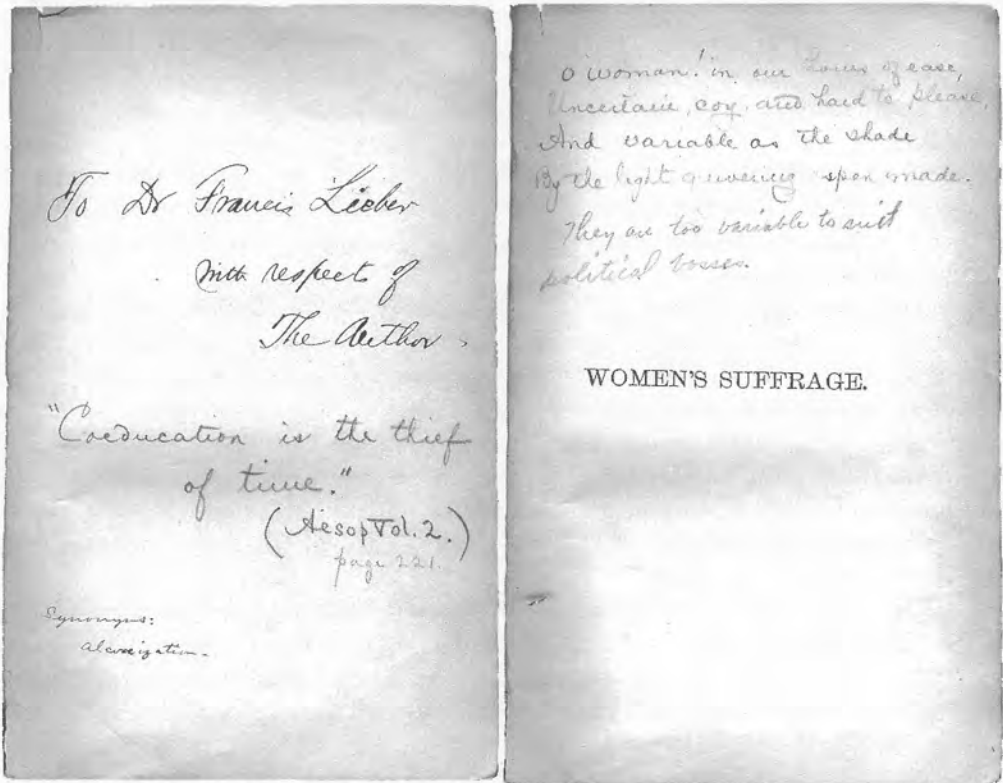 To Dr Francis Lieber
with respect of
The Author.
"Coeducation is the thief
of time."
(Aesop Vol. 2.)
page 221.
Synonyms:
O woman! in our hours of ease,
Uncertain, coy, and hard to please,
And variable as the shade
By the light quivering aspen made.
They are too variable to suit
political bosses.
WOMEN'S SUFFRAGE.